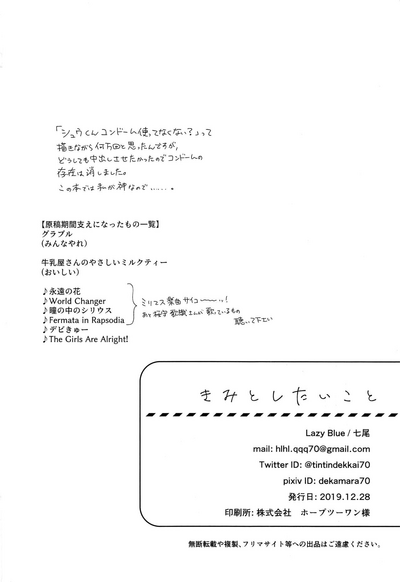 「ショウくんコンドーム使ってなくない？」って
描きながら何万回と思ったんですが、
どうしても中出しさせたかったのでコンドームの
存在は消しました。
この本では私が神なので……。
【原稿期間支えになったもの一覧】
グラブル
(みんなやれ)
牛乳屋さんのやさしいミルクティー
(おいしい)
♪永遠の花
♪World Changer
♪瞳の中のシリウス
♪Fermata in Rapsodia
♪デビきゅー
♪The Girls Are Alright!
ミリマス楽曲サイコーーーッ!
あと桜守歌織さんが歌っているもの
聴いて下さい
きみとしたいこと
Lazy Blue / 七尾
mail: hlhl.qqq70@gmail.com
Twitter ID: @tintindekkai70
pixiv ID: dekamara70
発行日: 2019.12.28
印刷所: 株式会社 ホープツーワン様
無断転載や複製、フリマサイト等への出品はご遠慮ください。